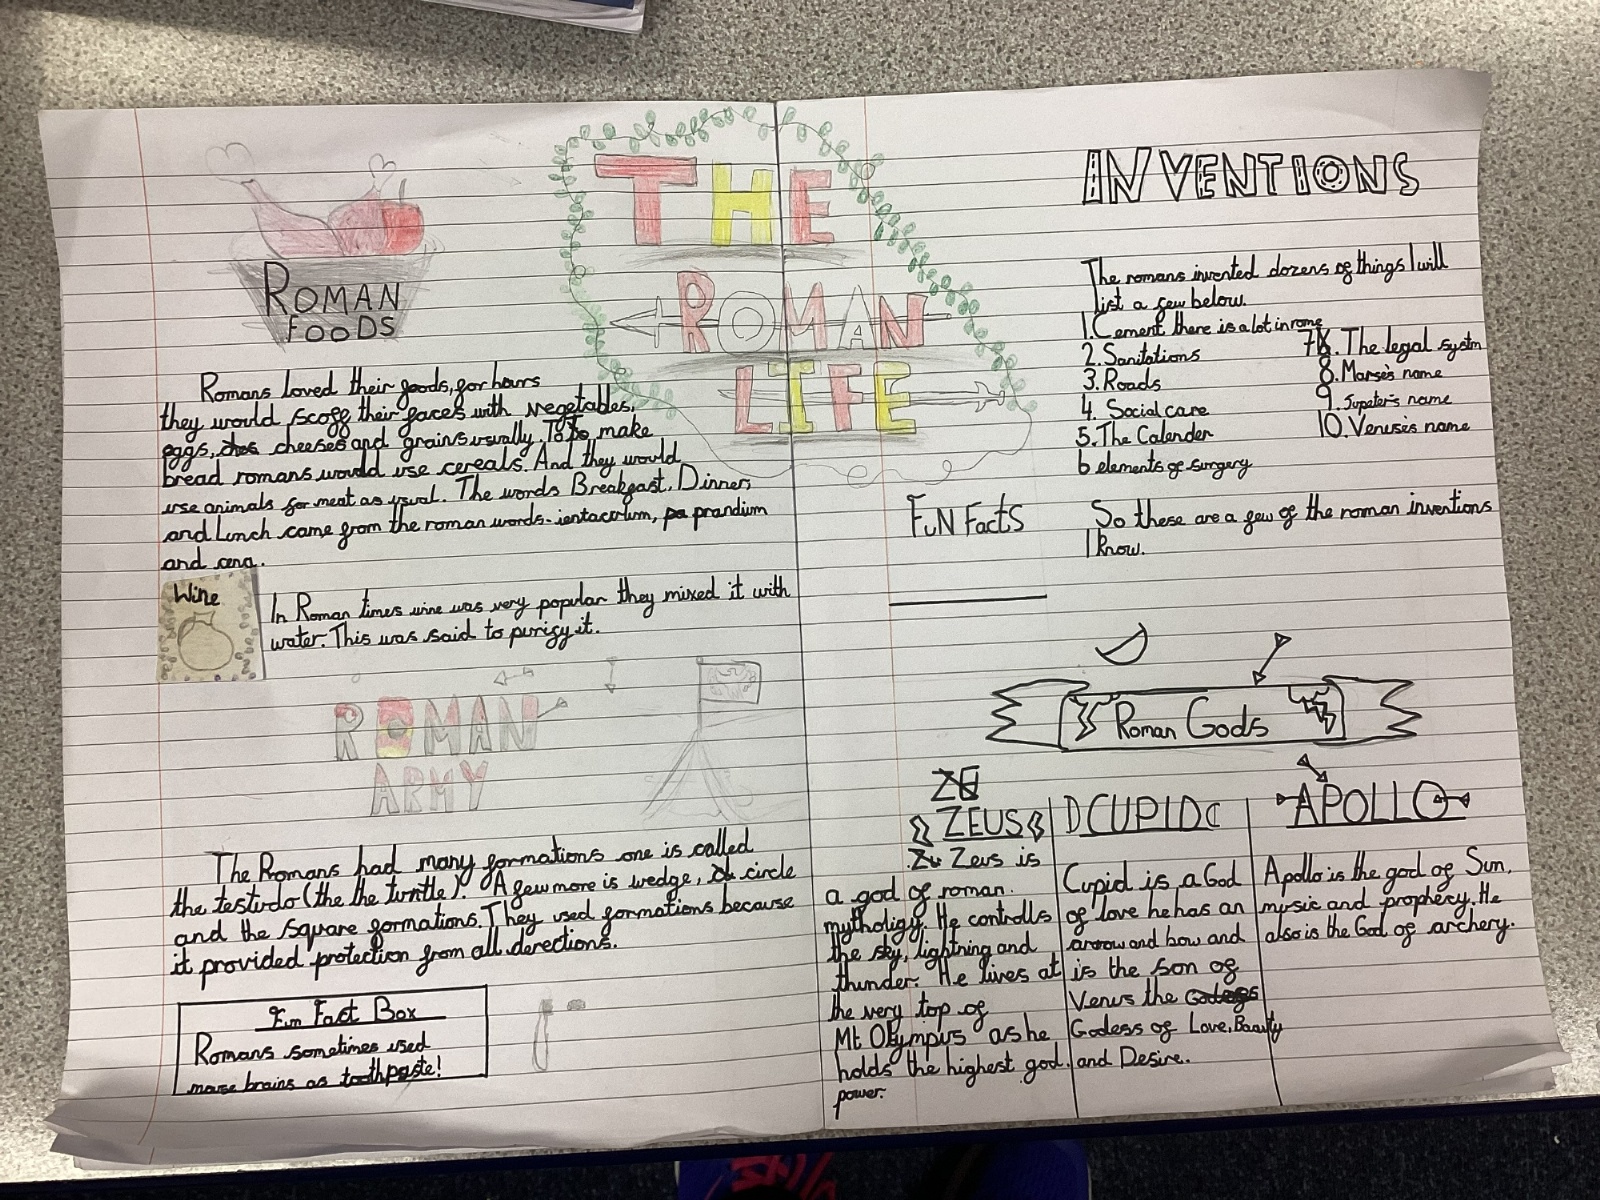 THE
ROMAN
LIFE
ROMAN
FOODS
Romans loved their foods, for hours
they would scoff their faces with vegetables,
eggs, cheeses and grains usually. To make
bread romans would use cereals. And they would
use animals for meat as usual. The words Breakfast, Dinner,
and Lunch came from the roman words- ientaculum, prandium
and cena.
Wine
In Roman times wine was very popular they mixed it with
water. This was said to purify it.
ROMAN
ARMY
The Romans had many formations one is called
the testudo (the the turttle). A few more is wedge, circle
and the square formations. They used formations because
it provided protection from all derections.
Fun Fact Box
Romans sometimes used
mouse brains as toothpaste!
INVENTIONS
The romans invented dozens of things I will
list a few below.
1. Cement there is a lot in rome
2. Sanitations
3. Roads
4. Social care
5. The Calender
6 elements of surgery
7. The legal systm
8. Marse's name
9. Jupeter's name
10. Venuse's name
So these are a few of the roman inventions
I know.
FUN FactS
Roman Gods
ZE
ZEUS
Zu Zeus is
a god of roman.
mytholigy. He controlls
the sky, lightning and
thunder. He lives at
the very top of
Mt Olympus as he
holds the highest god
power.
CUPID
Cupid is a God
of love he has an
arrow and bow and
is the son of
Venus the
Godess of Love, Beauty
and Desire.
APOLLO
Apollo is the god of Sun,
music and prophecy. He
also is the God of archery.